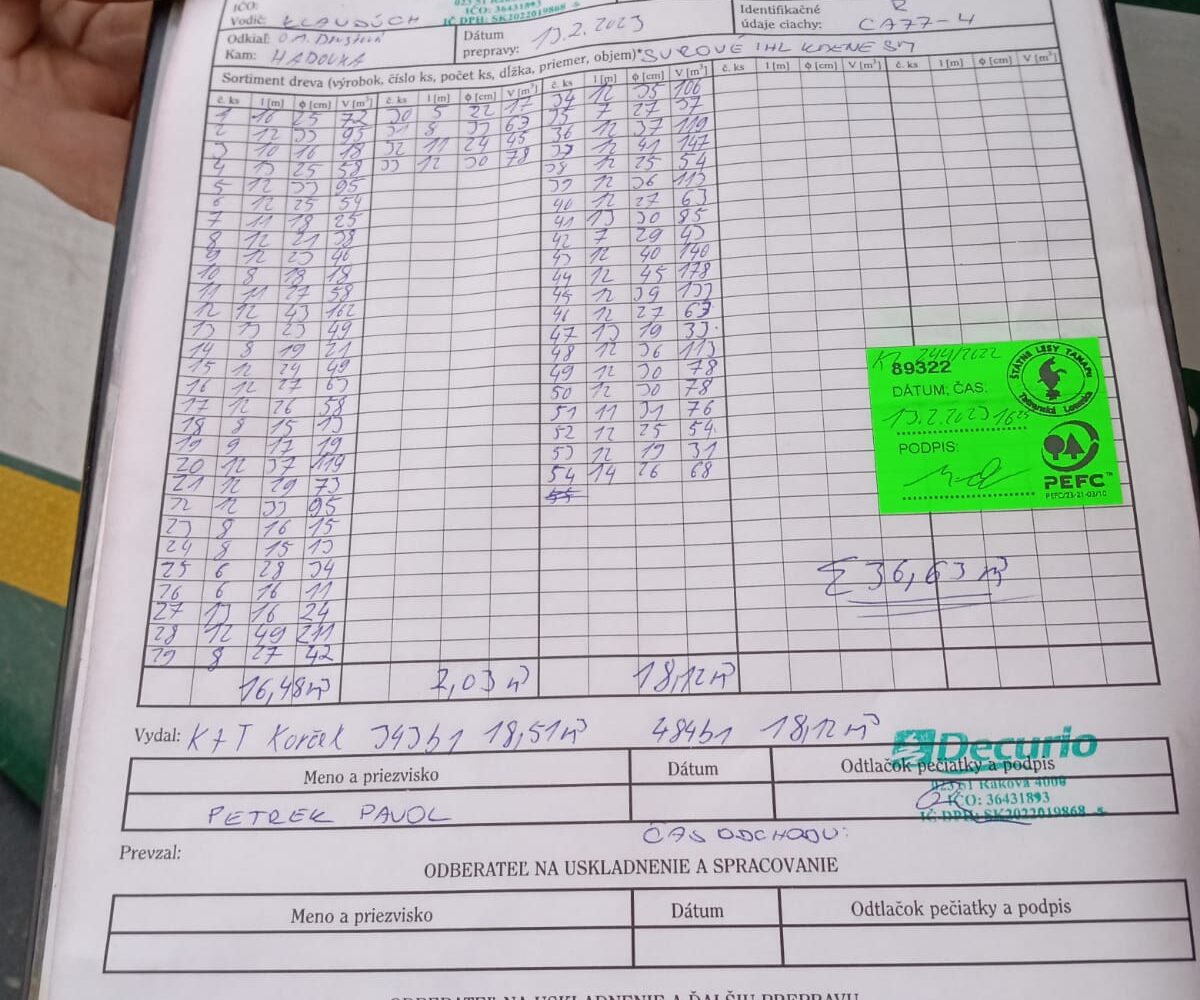 IČO:
IČO: 36431893
Vodič: KLAUDÚCH
IČ DPH: SK2022019868
Odkiaľ:
Kam: HADOVKA
Dátum
prepravy: 13.2.2023
Identifikačné
údaje ciachy: CA77-4
Sortiment dreva (výrobok, číslo ks, počet ks, dĺžka, priemer, objem)* SUROVÉ IHL KMENE
č. ks l [m] φ [cm] V [m³] č. ks l [m] φ [cm] V [m³] č. ks l [m] φ [cm] V [m³] č. ks l [m] φ [cm] V [m³] č. ks l [m] φ [cm] V [m³]
1 16 25 72 30 5 22 17 34 12 35 106
2 12 33 95 31 8 33 63 35 7 27 37
3 10 16 18 32 11 24 45 36 12 37 119
4 13 25 58 33 12 30 78 37 12 41 147
5 12 33 95 38 12 25 54
6 12 25 54 39 12 36 113
7 11 18 25 40 12 27 63
8 12 21 38 41 13 30 85
9 12 23 46 42 7 29 43
10 8 18 18 43 12 40 140
11 11 27 58 44 12 45 178
12 12 43 162 45 12 39 133
13 13 23 49 46 12 27 63
14 8 19 21 47 13 19 33
15 12 24 49 48 12 36 113
16 12 27 63 49 12 30 78
17 12 26 58 50 12 30 78
18 8 15 13 51 11 31 76
19 9 17 19 52 12 25 54
20 12 37 119 53 12 19 31
21 12 29 73 54 14 26 68
22 12 33 95 55
23 8 16 15
24 8 15 13
25 6 28 34
26 6 16 11
27 13 16 24
28 12 49 211
29 8 27 42
16,48 m³ 2,03 m³ 18,12 m³
244/2022
89322
DÁTUM, ČAS:
13.2.2023
PODPIS:
ŠTÁTNE LESY TANAPU
Tatranská Lomnica
PEFC™
PEFC/23-21-03/10
Σ 36,63 m³
Vydal: K+T Korček 343b1 18,51 m³ 484b1 18,12 m³
Decurio
Meno a priezvisko Dátum Odtlačok pečiatky a podpis
023 51 Raková 4000
IČO: 36431893
IČ DPH: SK2022019868
PETREK PAVOL
ČAS ODCHODU:
Prevzal:
ODBERATEĽ NA USKLADNENIE A SPRACOVANIE
Meno a priezvisko Dátum Odtlačok pečiatky a podpis
ODBERATEĽ NA USKLADNENIE A ĎALŠIU PREPRAVU